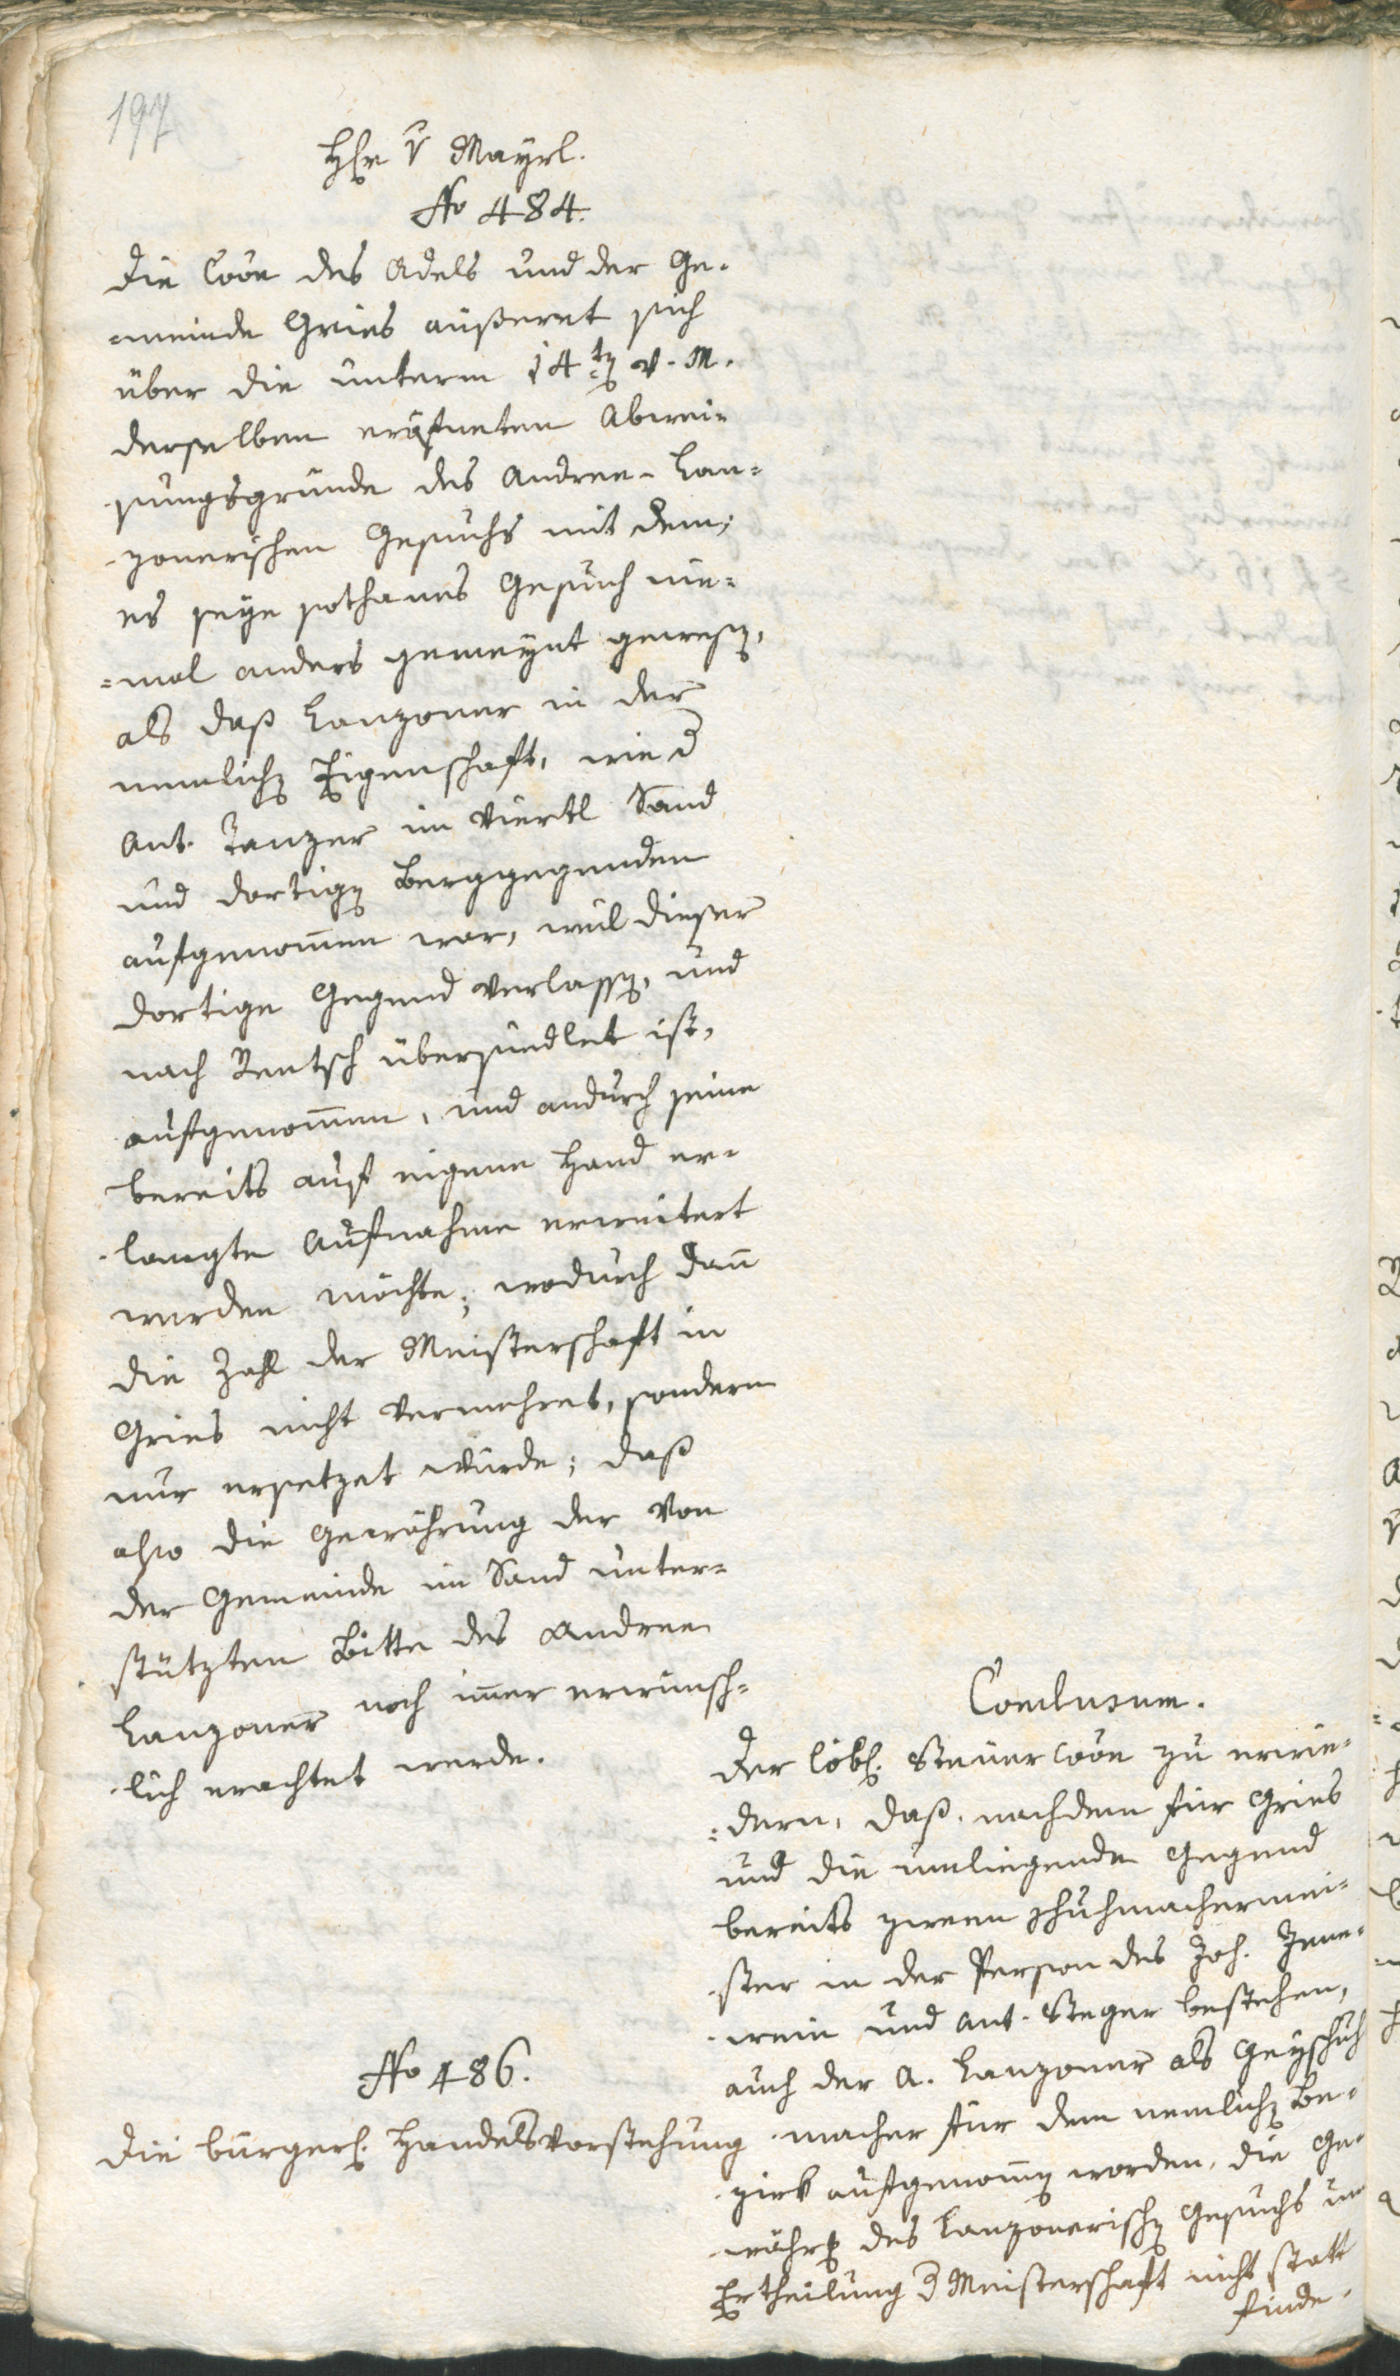 197
Hr v Mayrl.
No 484.
Die Coôn des Adels und der Ge-
-meinde Gries äußeret sich
über die unterm 14ten v. M.
derselben eröfneten Abwei-
sungsgründe des Andree Lan-
zonerischen Gesuchs mit dem;
es seye sothanes Gesuch nie-
-mal anders gemeynt gewesen,
als daß Lanzoner in der
nemlichen Eigenschaft, wie d
Ant. Tanzer im Viertl Sand
und dortigen Berggegenden
aufgenom̅en war, weil dieser
dortige Gegend verlassen, und
nach Rentsch übersiedlet ist,
aufgenom̅en, und andurch seine
bereits auf eigene Hand er-
langte Aufnahme erweitert
werden möchte; wodurch dan̅
die Zahl der Meisterschaft in
Gries nicht vermehret, sondern
nur ersetzet würde; daß
also die Gewährung der von
der Gemeinde im Sand unter-
stützten Bitte des Andree
Lanzoner noch im̅er erwünsch-
lich erachtet werde.
Conclusum.
Der löbl. Steuer Coôn zu erwie-
-dern, daß, nachdem für Gries
und die umliegende Gegend
bereits zween Schuhmachermei-
ster in der Person des Joh. Jene-
wein und Ant. Steger bestehen,
auch der A. Lanzoner als Geyschuh
macher für den nemlichen Be-
zirk aufgenom̅en worden, die Ge-
währung des Lanzonerischen Gesuchs um
Ertheilung d Meisterschaft nicht statt
finde.
No 486.
Die bürgerl. Handelsvorstehung